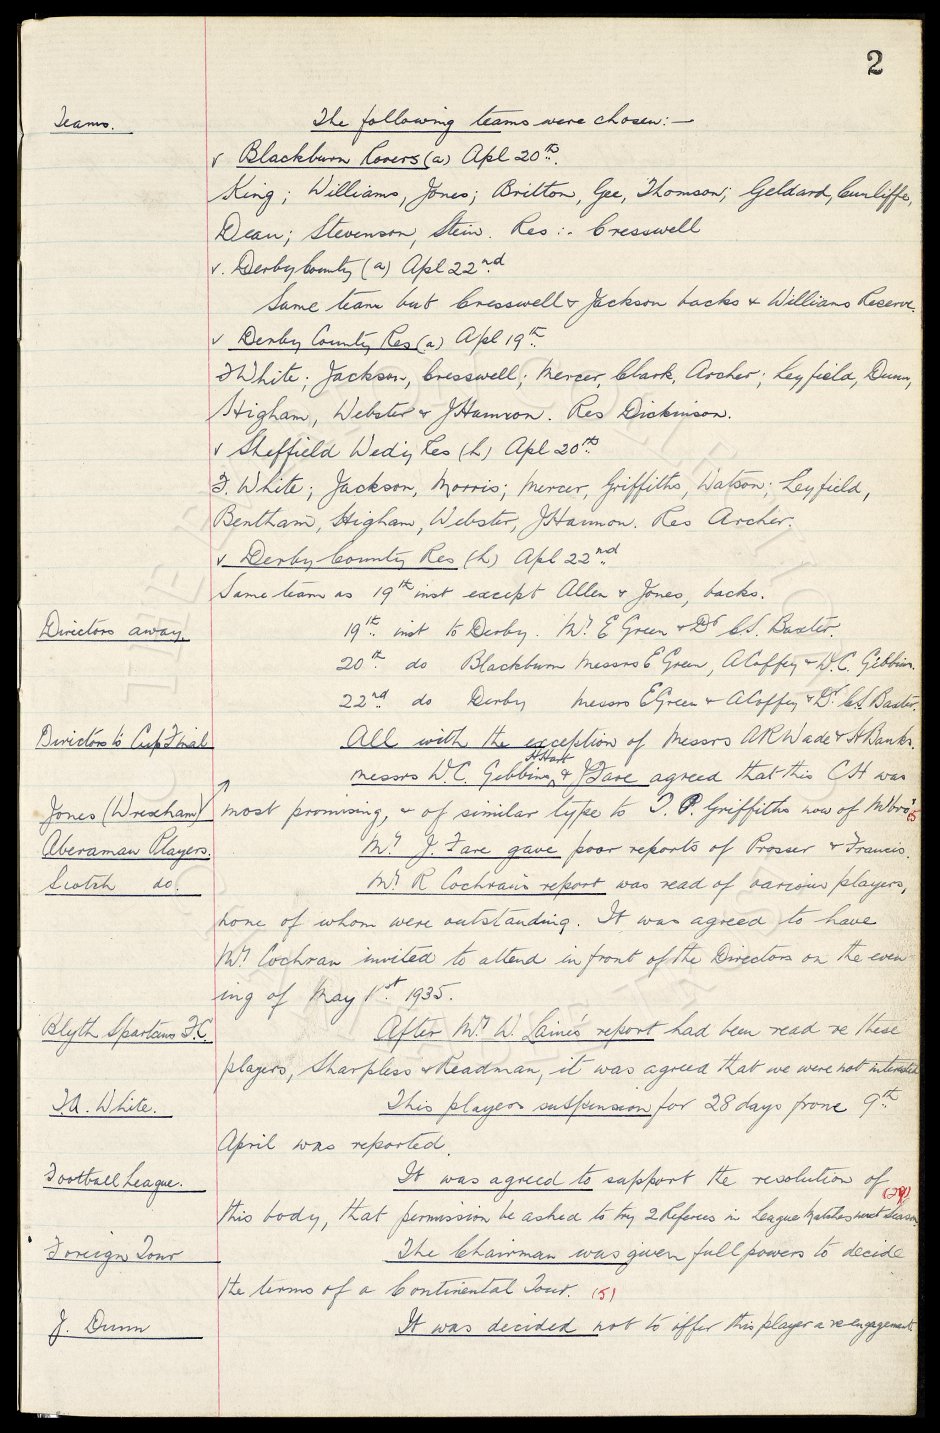 2
Teams. The following teams were chosen:—
v Blackburn Rovers (a) Apl 20th.
King; Williams, Jones; Britton, Gee, Thomson; Geldard, Cunliffe,
Dean; Stevenson, Stein. Res:- Cresswell
v. Derby County (a) Apl 22nd
Same team but Cresswell & Jackson backs & Williams Reserve.
v Derby County Res (a) Apl 19th
F White; Jackson, Cresswell; Mercer, Clark, Archer; Leyfield, Dunn,
Higham, Webster & J Hannon. Res Dickinson.
v Sheffield Wedy Res (h) Apl 20th
F. White; Jackson, Morris; Mercer, Griffiths, Watson; Leyfield,
Bentham, Higham, Webster, J Hannon. Res Archer.
v Derby County Res (h) Apl 22nd
Same team as 19th inst except Allen & Jones, backs.
Directors away. 19th inst to Derby. Mr. E Green & Dr C.S. Baxter.
20th do Blackburn Messrs E Green, A Coffey & W.C. Gibbins.
22nd do Derby Messrs E Green & A Coffey & Dr. C.S. Baxter.
Directors to Cup Final All with the exception of Messrs A R Wade & H Banks.
H Hart
Messrs W.C. Gibbins, & J Fare agreed that this CH was
Jones (Wrexham) most promising, & of similar type to T. P. Griffiths now of M'boro'
Aberaman Players. Mr J. Fare gave poor reports of Prosser & Francis.
Scotch do. Mr R Cochran's report was read of various players,
none of whom were outstanding. It was agreed to have
Mr Cochran invited to attend in front of the Directors on the even-
ing of May 1st. 1935.
Blyth Spartans F.C. After Mr W. Laine's report had been read re these
players, Sharpless & Readman, it was agreed that we were not interested
F.A. White. This players suspension for 28 days from 9th
April was reported.
Football League. It was agreed to support the resolution of
this body, that permission be asked to try 2 Referees in League Matches next Season.
Foreign Tour The Chairman was given full powers to decide
the terms of a Continental Tour. (5)
J. Dunn It was decided not to offer this player a re-engagement